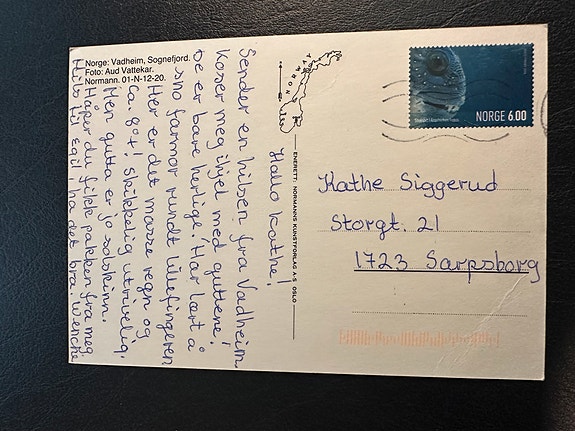 Norge: Vadheim, Sognefjord.
Foto: Aud Vattekar.
Normann. 01-N-12-20.
Hallo Kathe!
Sender en hilsen fra Vadheim.
Koser meg ihjel med guttene!
De er bare herlige! Har lært å
sno farmor rundt lillefingeren
Her er det masse regn og
ca. 8°+! skikkelig utrivelig!
Men gutta er jo solskinn.
Håper du fikk pakken fra meg
Hils til Egil, ha det bra. Wenche
NORWAY
ENERETT: NORMANNS KUNSTFORLAG A.S OSLO
NORGE 6.00
Kathe Siggerud
Storgt. 21
1723 Sarpsborg